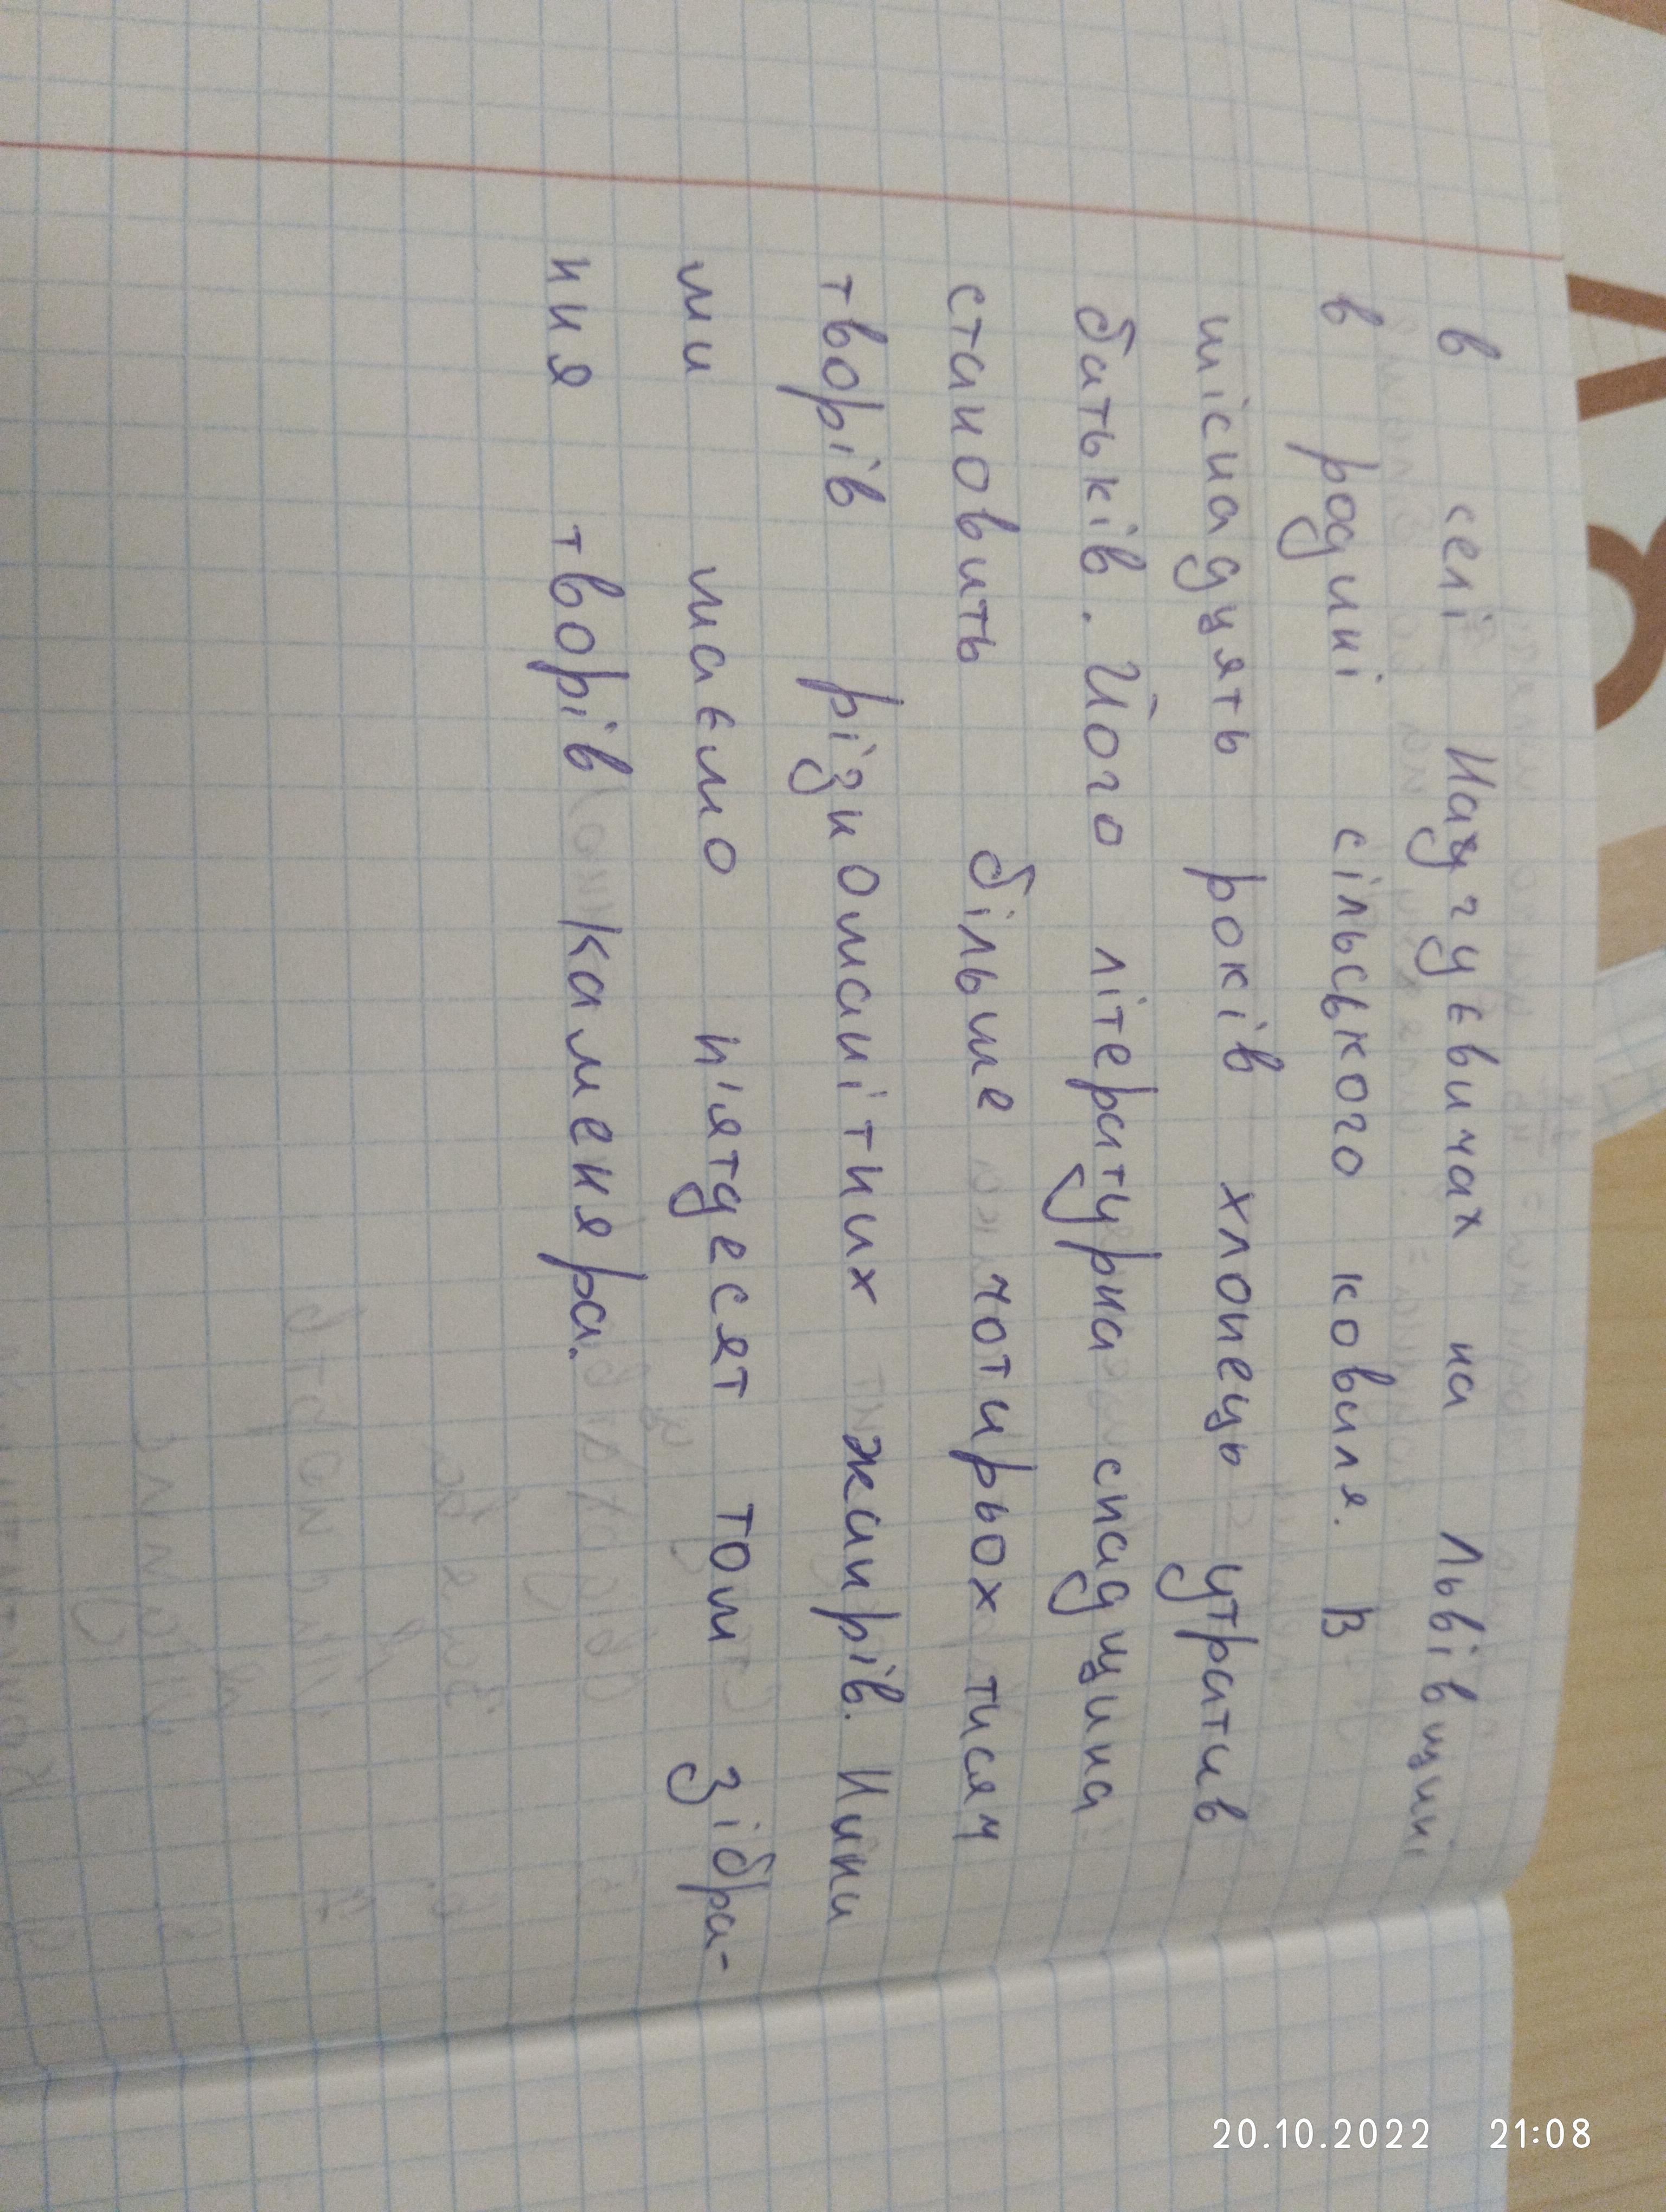 в селі Нагуєвичах на Львівщині
в родині сільського коваля. В
шіснадцять років хлопець утратив
батьків. Його літературна спадщина
становить більше чотирьох тисяч
творів різноманітних жанрів. Нини
ми маємо п'ятдесят том зібра-
ння творів каменяра.
20.10.2022 21:08